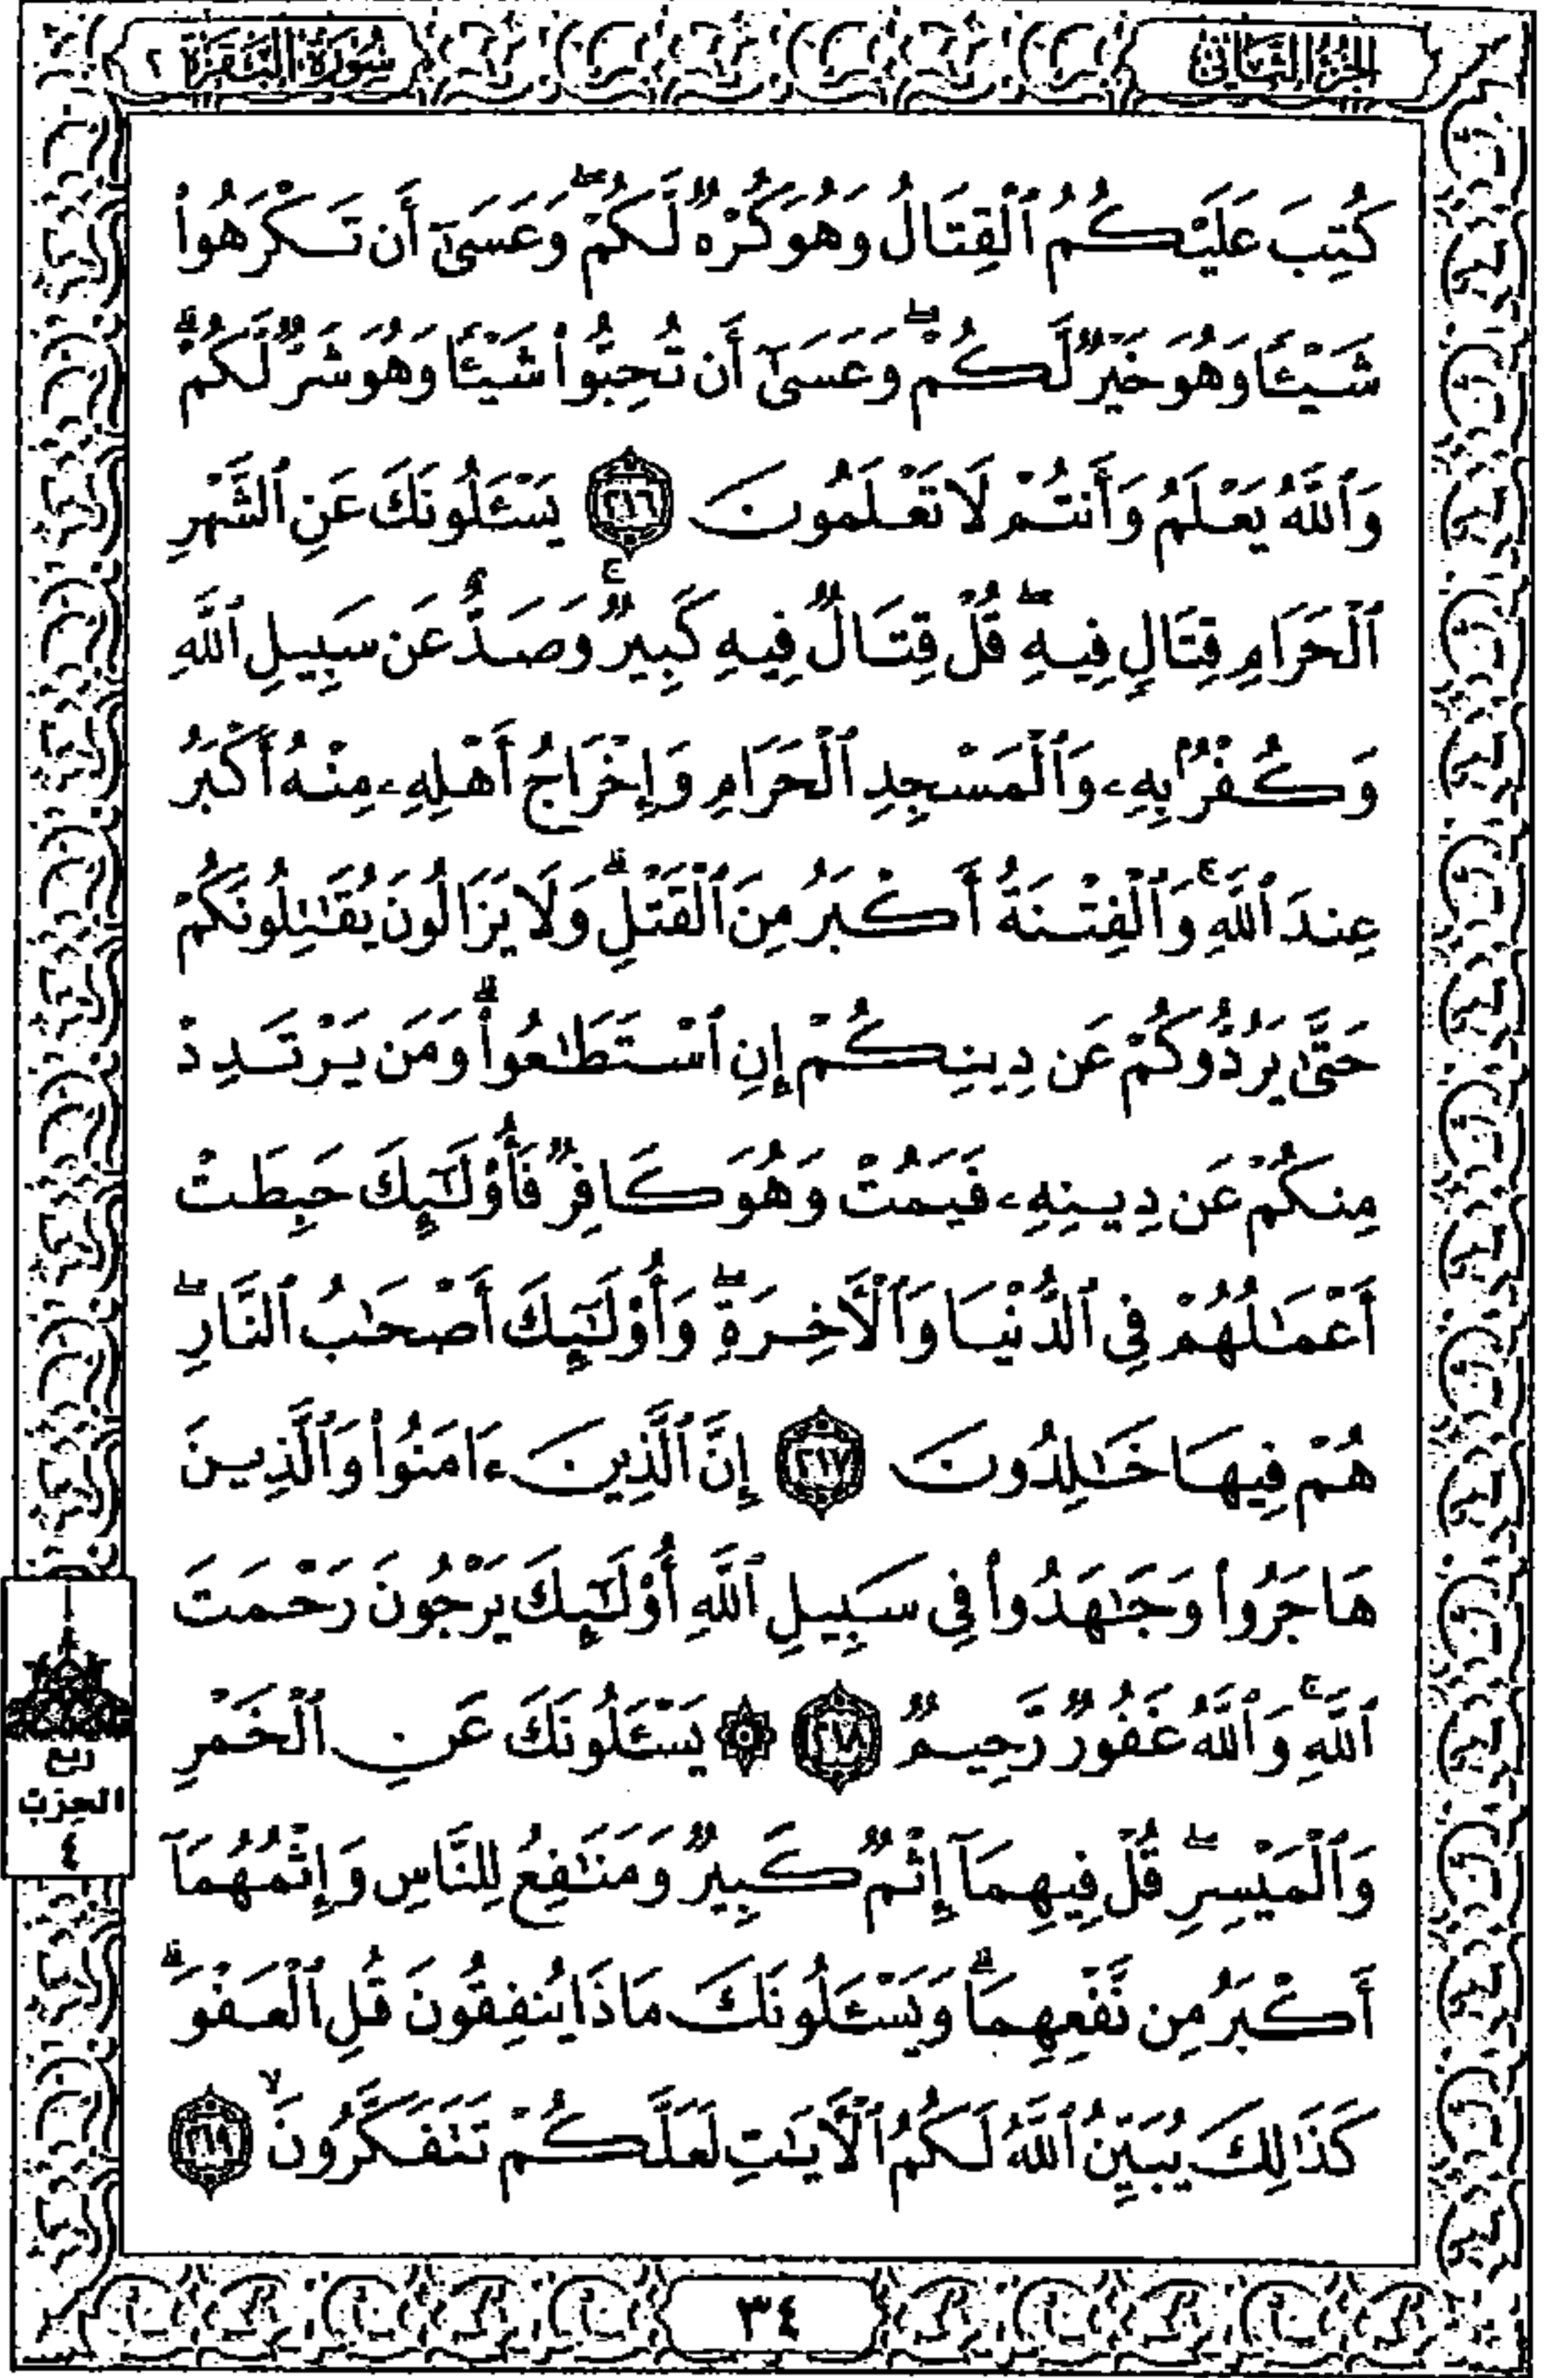 الجزء الثاني
سورة البقرة ٢
كُتِبَ عَلَيْكُمُ ٱلْقِتَالُ وَهُوَ كُرْهٌ لَّكُمْ ۖ وَعَسَىٰٓ أَن تَكْرَهُوا۟
شَيْـًٔا وَهُوَ خَيْرٌ لَّكُمْ ۖ وَعَسَىٰٓ أَن تُحِبُّوا۟ شَيْـًٔا وَهُوَ شَرٌّ لَّكُمْ ۗ
وَٱللَّهُ يَعْلَمُ وَأَنتُمْ لَا تَعْلَمُونَ ٢١٦ يَسْـَٔلُونَكَ عَنِ ٱلشَّهْرِ
ٱلْحَرَامِ قِتَالٍ فِيهِ ۖ قُلْ قِتَالٌ فِيهِ كَبِيرٌ ۚ وَصَدٌّ عَن سَبِيلِ ٱللَّهِ
وَكُفْرٌۢ بِهِۦ وَٱلْمَسْجِدِ ٱلْحَرَامِ وَإِخْرَاجُ أَهْلِهِۦ مِنْهُ أَكْبَرُ
عِندَ ٱللَّهِ ۚ وَٱلْفِتْنَةُ أَكْبَرُ مِنَ ٱلْقَتْلِ ۗ وَلَا يَزَالُونَ يُقَـٰتِلُونَكُمْ
حَتَّىٰ يَرُدُّوكُمْ عَن دِينِكُمْ إِنِ ٱسْتَطَـٰعُوا۟ ۚ وَمَن يَرْتَدِدْ
مِنكُمْ عَن دِينِهِۦ فَيَمُتْ وَهُوَ كَافِرٌ فَأُو۟لَـٰٓئِكَ حَبِطَتْ
أَعْمَـٰلُهُمْ فِى ٱلدُّنْيَا وَٱلْـَٔاخِرَةِ ۖ وَأُو۟لَـٰٓئِكَ أَصْحَـٰبُ ٱلنَّارِ ۖ
هُمْ فِيهَا خَـٰلِدُونَ ٢١٧ إِنَّ ٱلَّذِينَ ءَامَنُوا۟ وَٱلَّذِينَ
هَاجَرُوا۟ وَجَـٰهَدُوا۟ فِى سَبِيلِ ٱللَّهِ أُو۟لَـٰٓئِكَ يَرْجُونَ رَحْمَتَ
ٱللَّهِ ۚ وَٱللَّهُ غَفُورٌ رَّحِيمٌ ٢١٨ ۞ يَسْـَٔلُونَكَ عَنِ ٱلْخَمْرِ
وَٱلْمَيْسِرِ ۖ قُلْ فِيهِمَآ إِثْمٌ كَبِيرٌ وَمَنَـٰفِعُ لِلنَّاسِ وَإِثْمُهُمَآ
أَكْبَرُ مِن نَّفْعِهِمَا ۗ وَيَسْـَٔلُونَكَ مَاذَا يُنفِقُونَ قُلِ ٱلْعَفْوَ ۗ
كَذَٰلِكَ يُبَيِّنُ ٱللَّهُ لَكُمُ ٱلْـَٔايَـٰتِ لَعَلَّكُمْ تَتَفَكَّرُونَ ٢١٩
ربع
الحزب
٤
٣٤